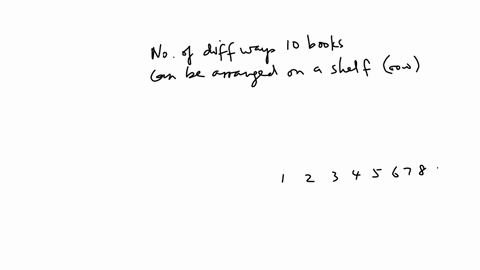 No. of diff ways 10 books
can be arranged on a shelf (row)
1 2 3 4 5 6 7 8